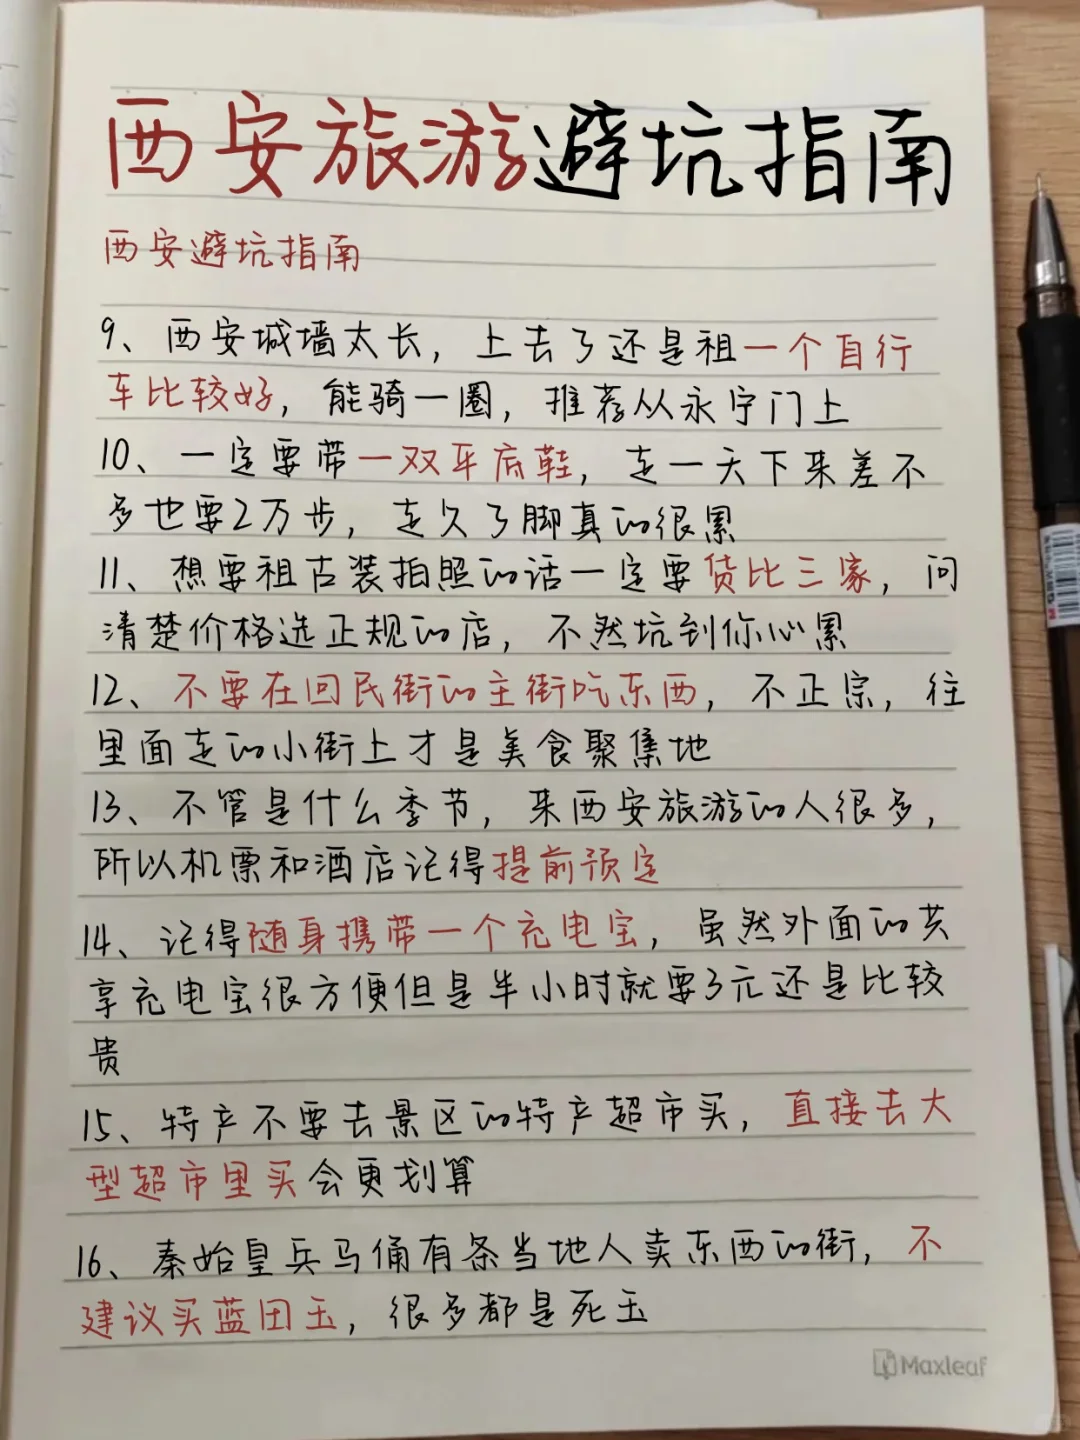 西安旅游避坑指南
西安避坑指南
9、西安城墙太长，上去了还是租一个自行
车比较好，能骑一圈，推荐从永宁门上
10、一定要带一双平底鞋，走一天下来差不
多也要2万步，走久了脚真的很累
11、想要租古装拍照的话一定要货比三家，问
清楚价格选正规的店，不然坑到你心累
12、不要在回民街的主街吃东西，不正宗，往
里面走的小街上才是美食聚集地
13、不管是什么季节，来西安旅游的人很多，
所以机票和酒店记得提前预定
14、记得随身携带一个充电宝，虽然外面的共
享充电宝很方便但是半小时就要3元还是比较
贵
15、特产不要去景区的特产超市买，直接去大
型超市里买会更划算
16、秦始皇兵马俑有条当地人卖东西的街，不
建议买蓝田玉，很多都是死玉
Maxleaf